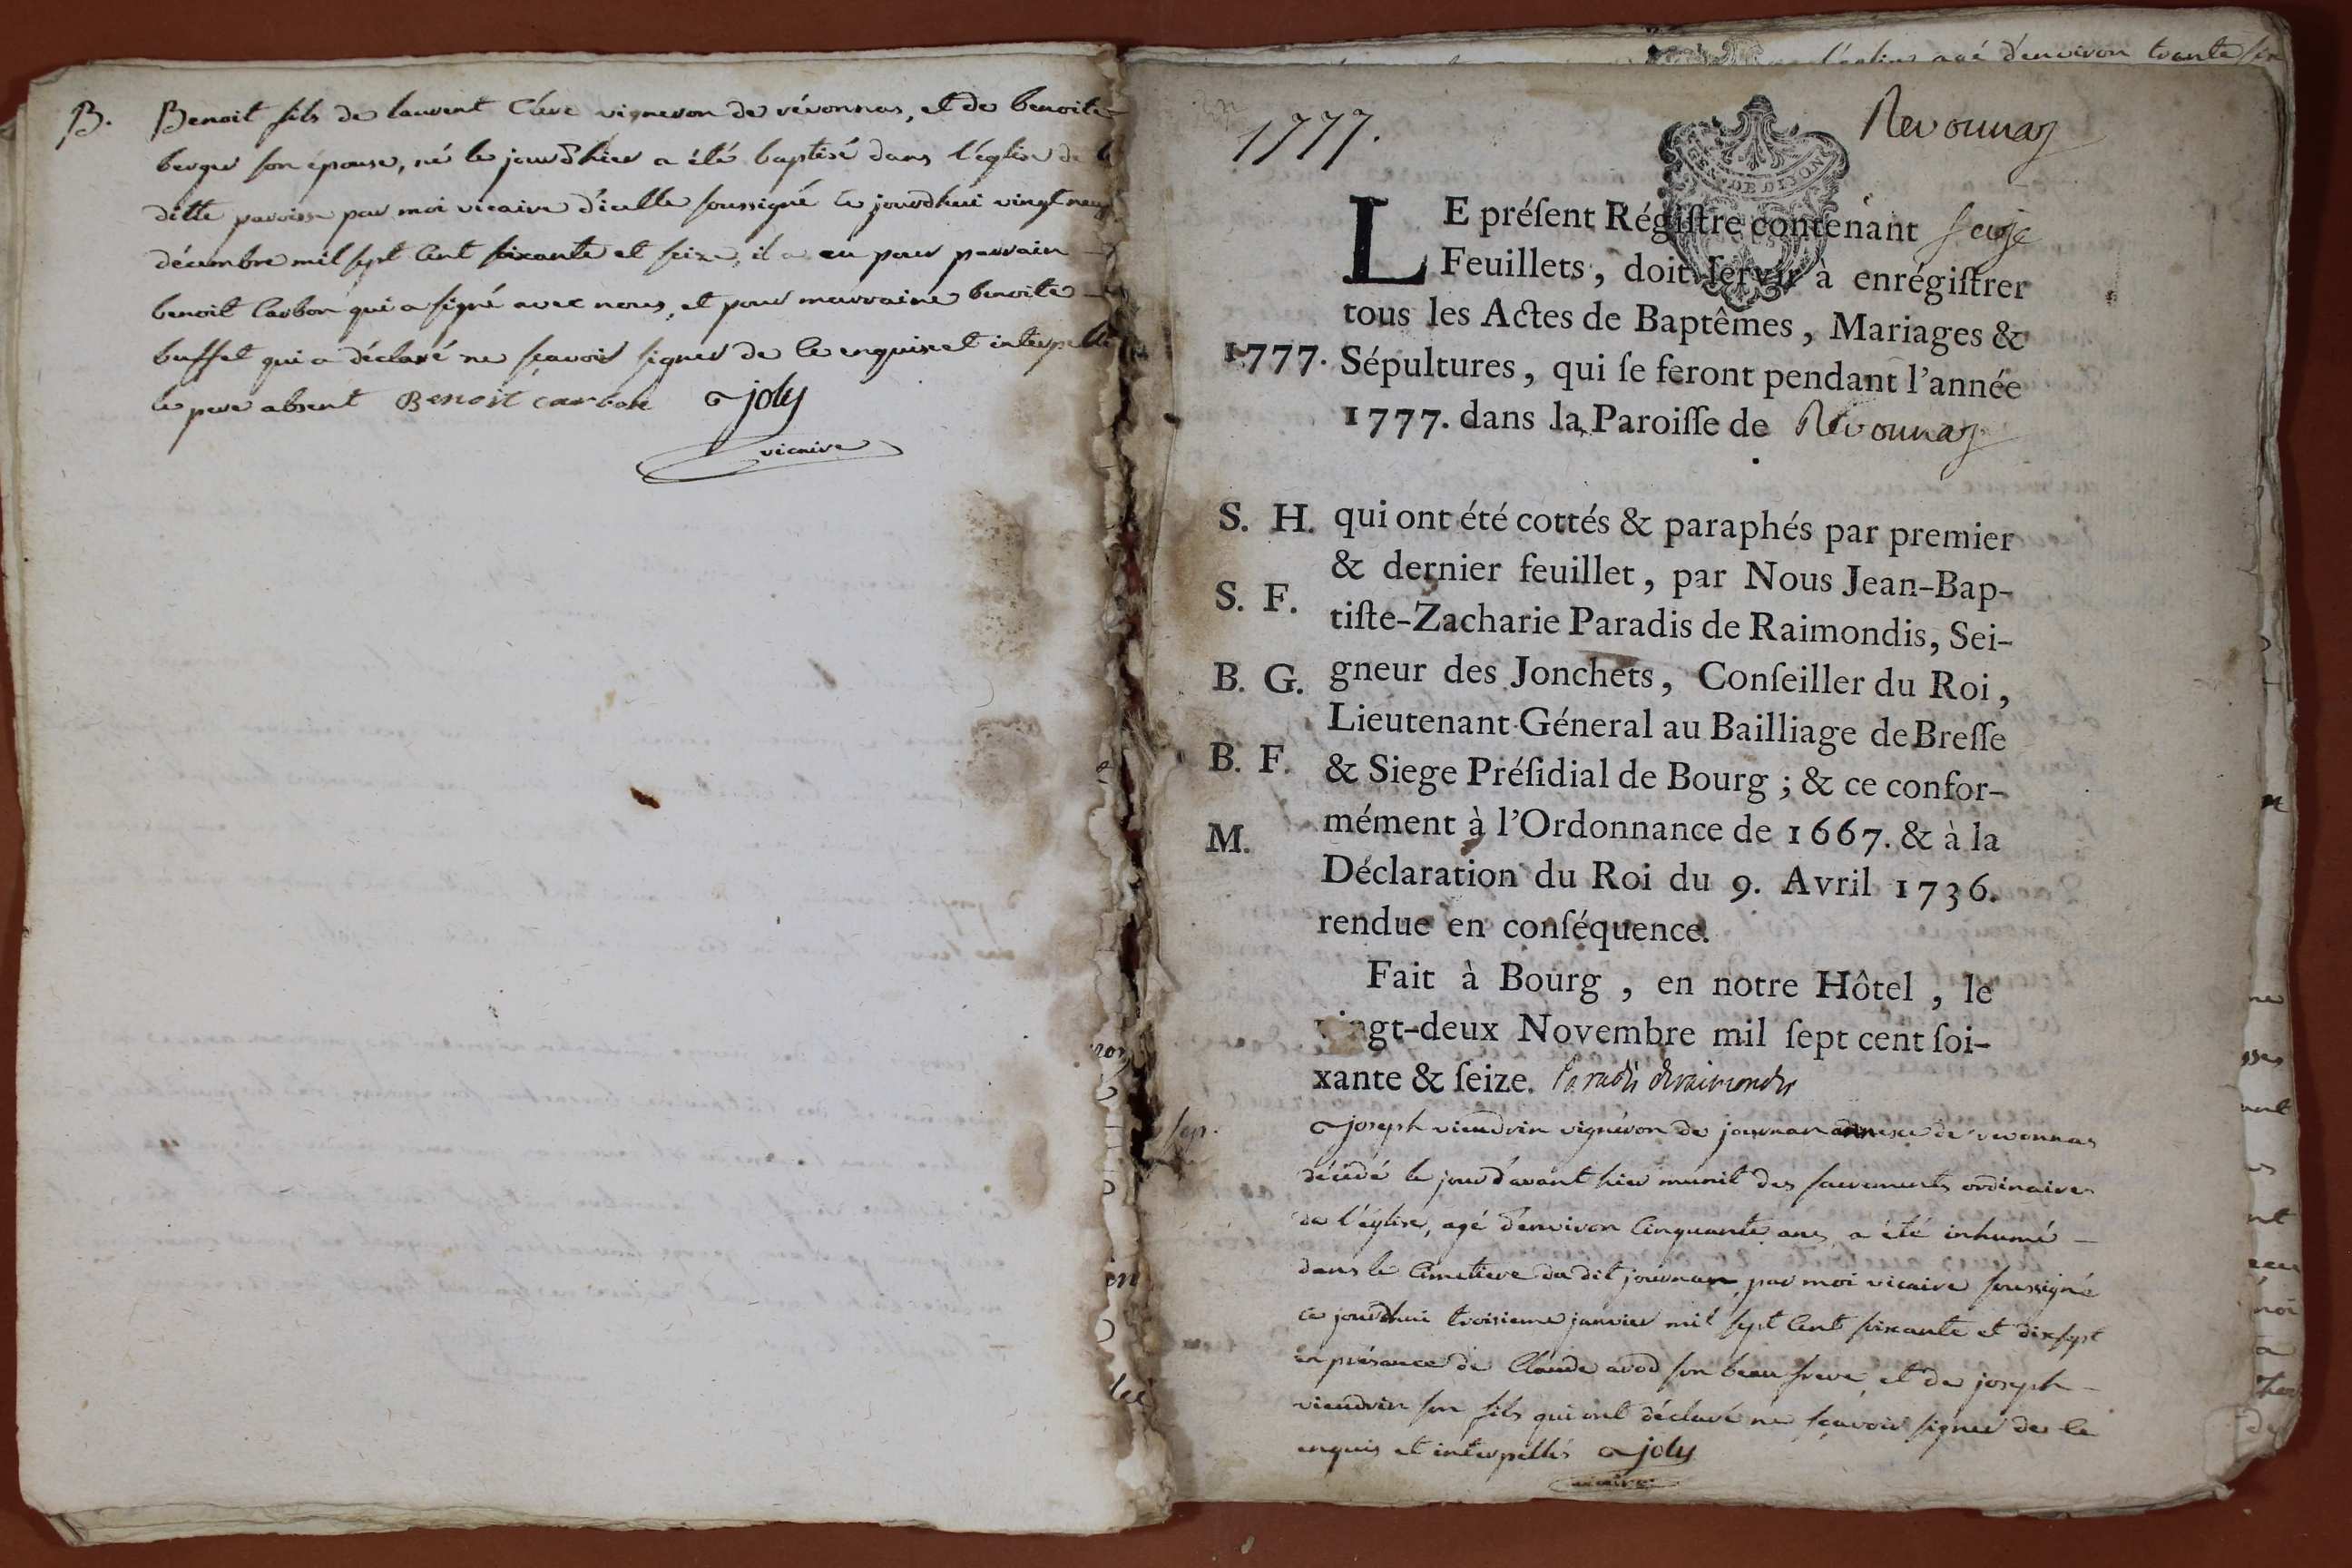 B. Benoit fils de laurent Cleve vigneron de révonnas, et de benoite
berger son épouse, né le jourdhier a été baptisé dans l'église de la
ditte paroisse par moi vicaire d'icelle soussigné ce jourdhui vingt neuf
décembre mil sept cent soixante et seize, il a eu pour parrain
benoit Carbon qui a signé avec nous, et pour marraine benoite
buffet qui a déclaré ne sçavoir signer de ce enquise et interpellé
le pere absent Benoit carbon joly
vicaire
1777. Revonnas
GEN. DE DIJON
LE préſent Régiſtre contenant seize
Feuillets, doit ſervir à enrégiſtrer
tous les Actes de Baptêmes, Mariages &
1777. Sépultures, qui ſe feront pendant l'année
1777. dans la Paroiſſe de Revonnas
S. H. qui ont été cottés & paraphés par premier
& dernier feuillet, par Nous Jean-Bap-
S. F. tiſte-Zacharie Paradis de Raimondis, Sei-
B. G. gneur des Jonchets, Conſeiller du Roi,
Lieutenant Géneral au Bailliage de Breſſe
B. F. & Siege Préſidial de Bourg ; & ce confor-
M. mément à l'Ordonnance de 1667. & à la
Déclaration du Roi du 9. Avril 1736.
rendue en conſéquence.
Fait à Bourg , en notre Hôtel , le
vingt-deux Novembre mil ſept cent ſoi-
xante & ſeize. Paradis deraimondis
sep. joseph vieudrin vigneron de journan annexe de revonnas
décédé le jour d'avant hier munit des sacrements ordinaires
de l'église, agé d'environ cinquante ans, a été inhumé
dans le Cimetiere du dit journan par moi vicaire soussigné
ce jourdhui troisieme janvier mil sept cent soixante et dixsept
en présance de Claude avod son beau frere, et de joseph
vieudrin son fils qui ont déclaré ne sçavoir signer de ce
enquis et interpellés joly
vicaire